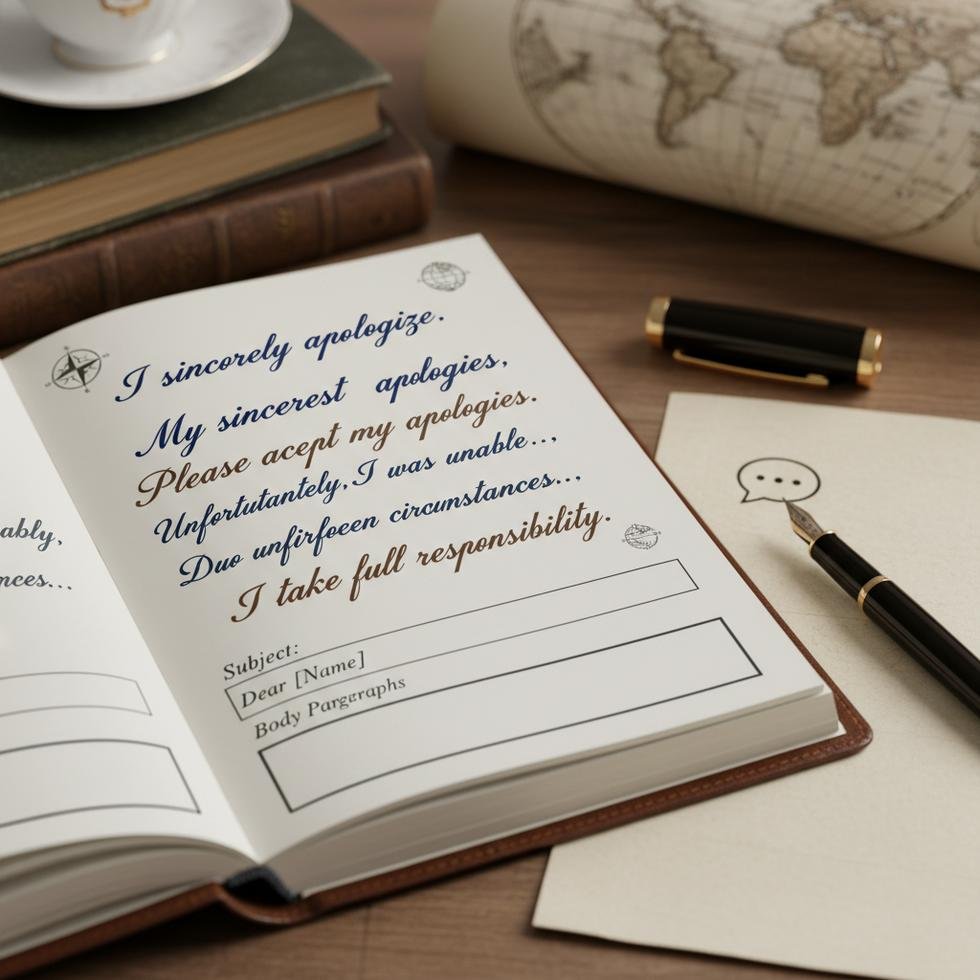 ably,
nces...
I sincorely apologize.
My sincerest apologies,
Please acept my apologies.
Unfortutantely, I was unable..,
Duo unfirfoeen circumstances..,
I take full responsibility.
Subject:
Dear [Name]
Body Pargraphs